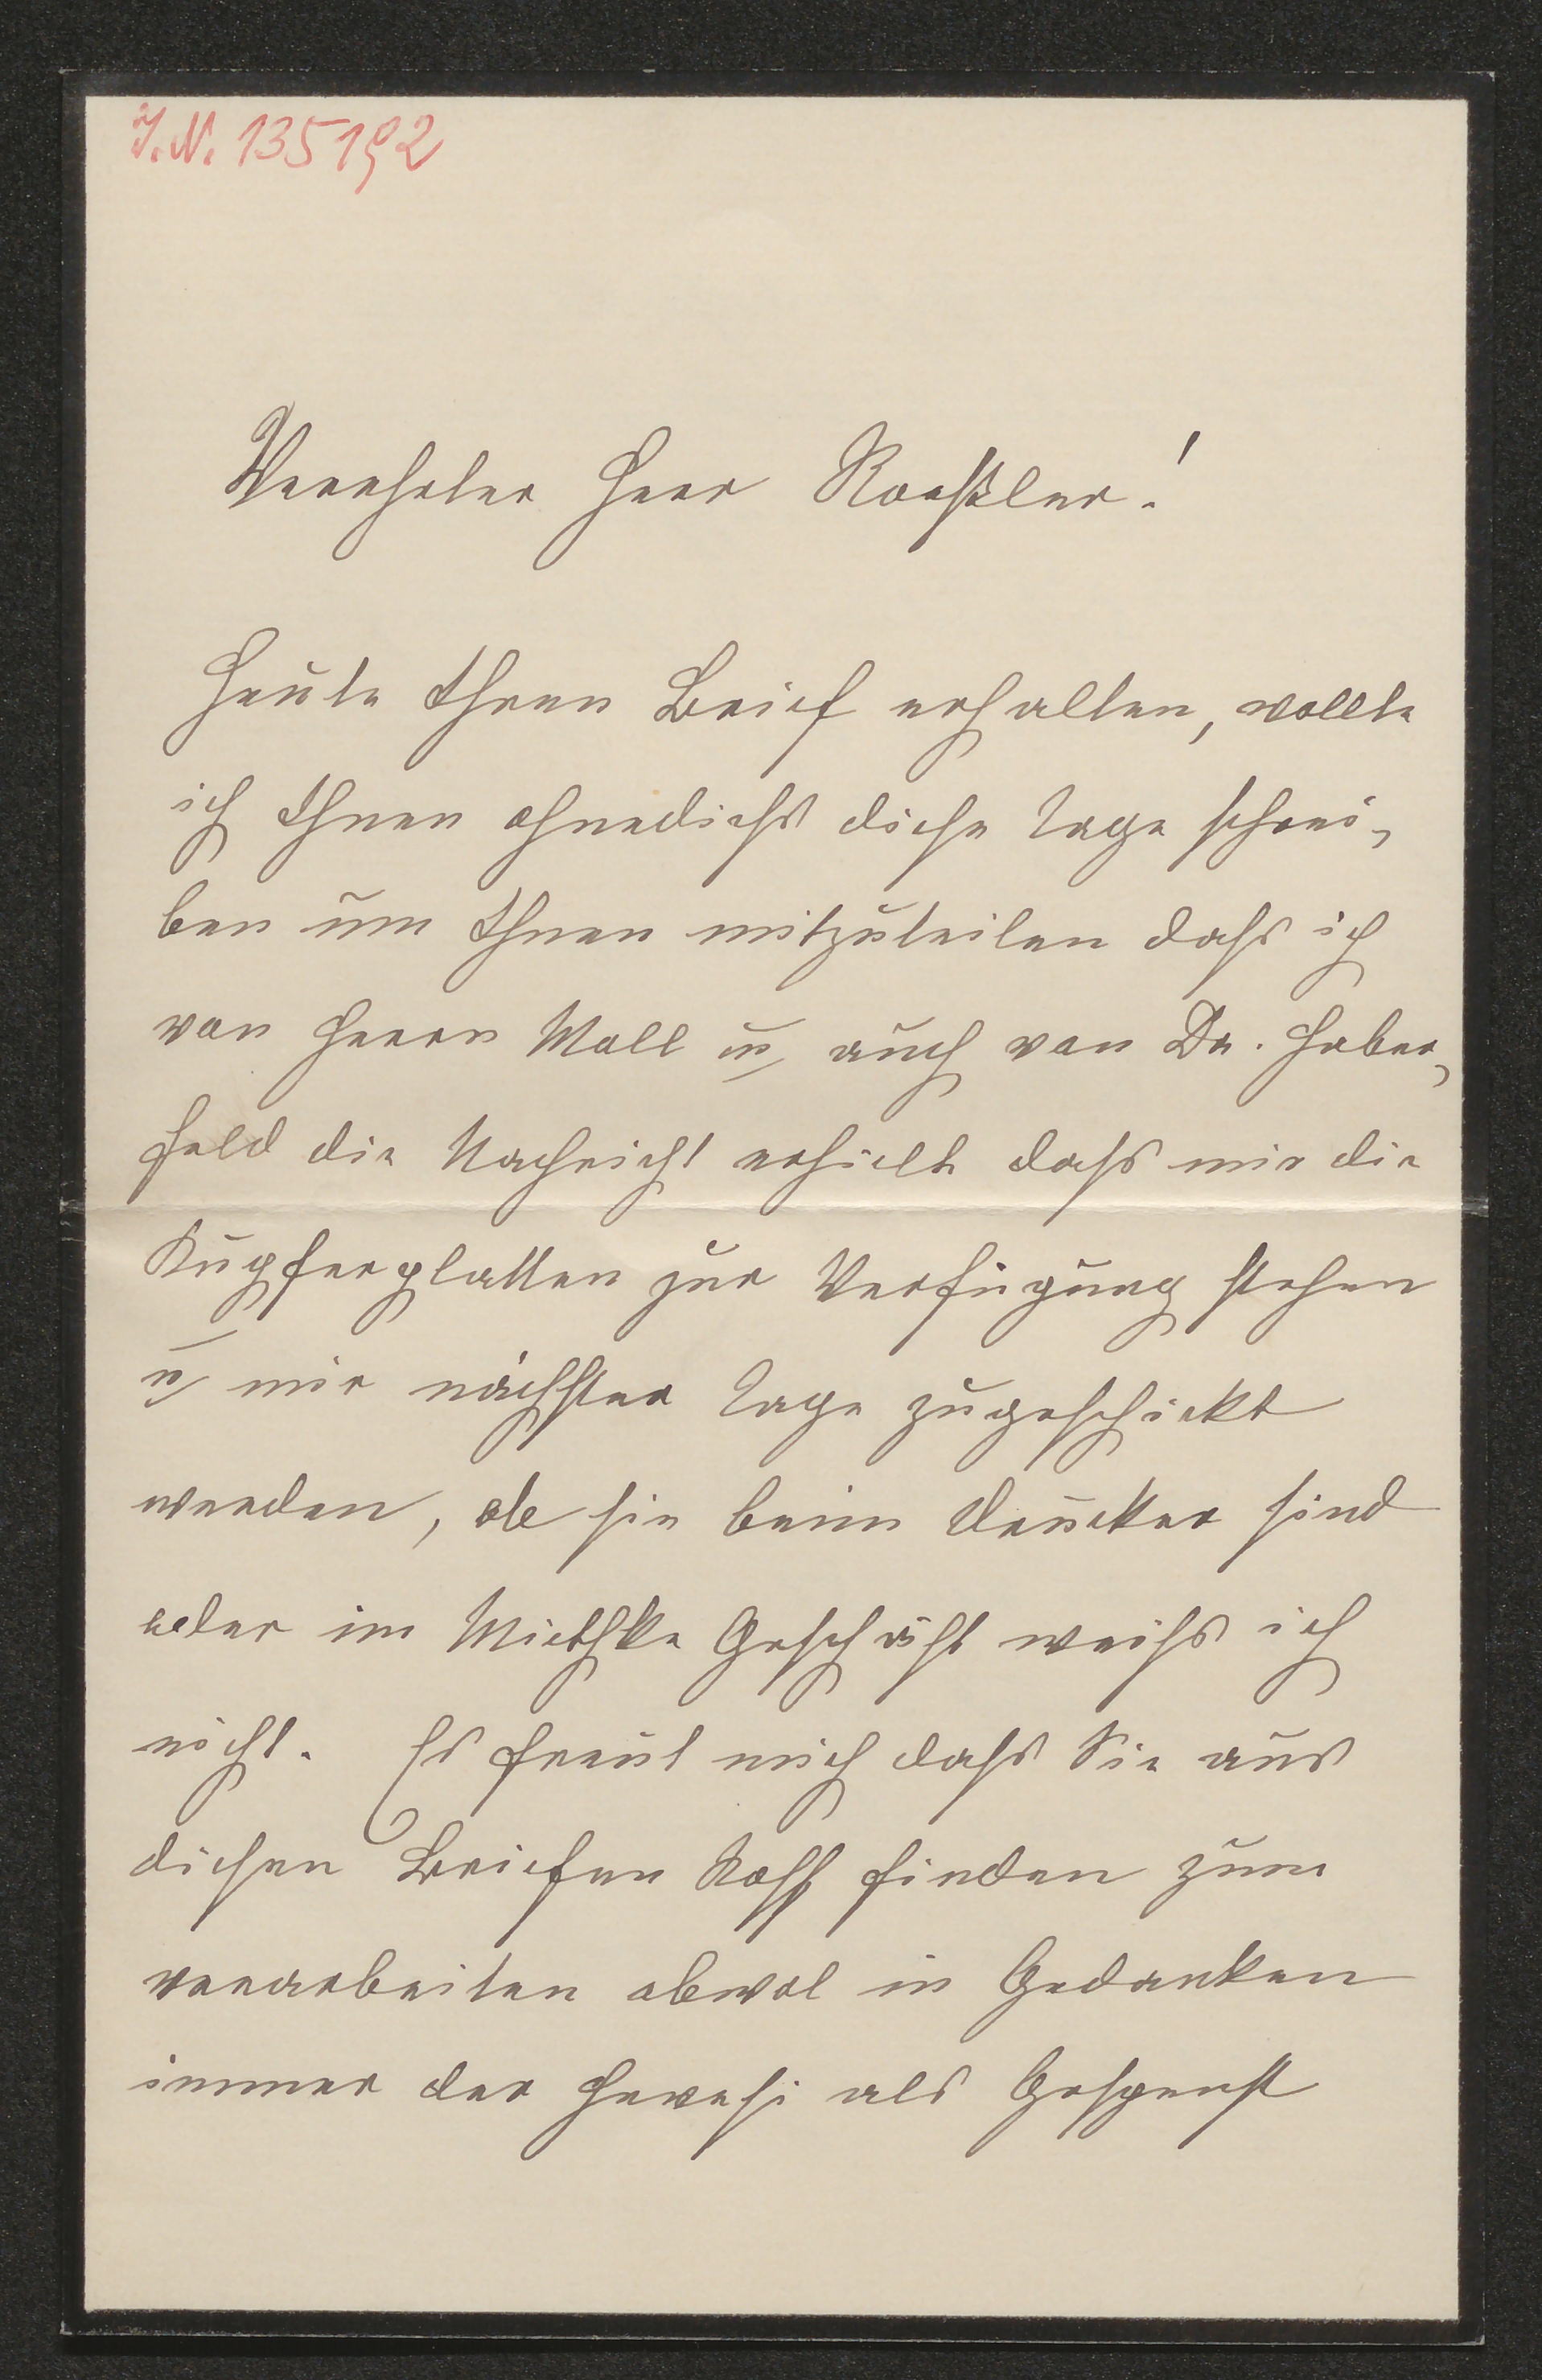 J.N. 135192
Verehrter Herr Roeßler!
Heute Ihren Brief erhalten, wollte
ich Ihnen ohnedieß diese Tage schrei-
ben um Ihnen mitzuteilen daß ich
von Herrn Moll u auch von Dr. Haber-
feld die Nachricht erhielt daß mir die
Kupferplatten zur Verfügung stehen
u mir nächster Tage zugeschickt
werden, ob sie beim Drucker sind
oder im Miethke Geschäft weiß ich
nicht. Es freut mich daß Sie aus
diesen Briefen Stoff finden zum
verarbeiten obwol in Gedanken
immer der Hevesi als Gespenst